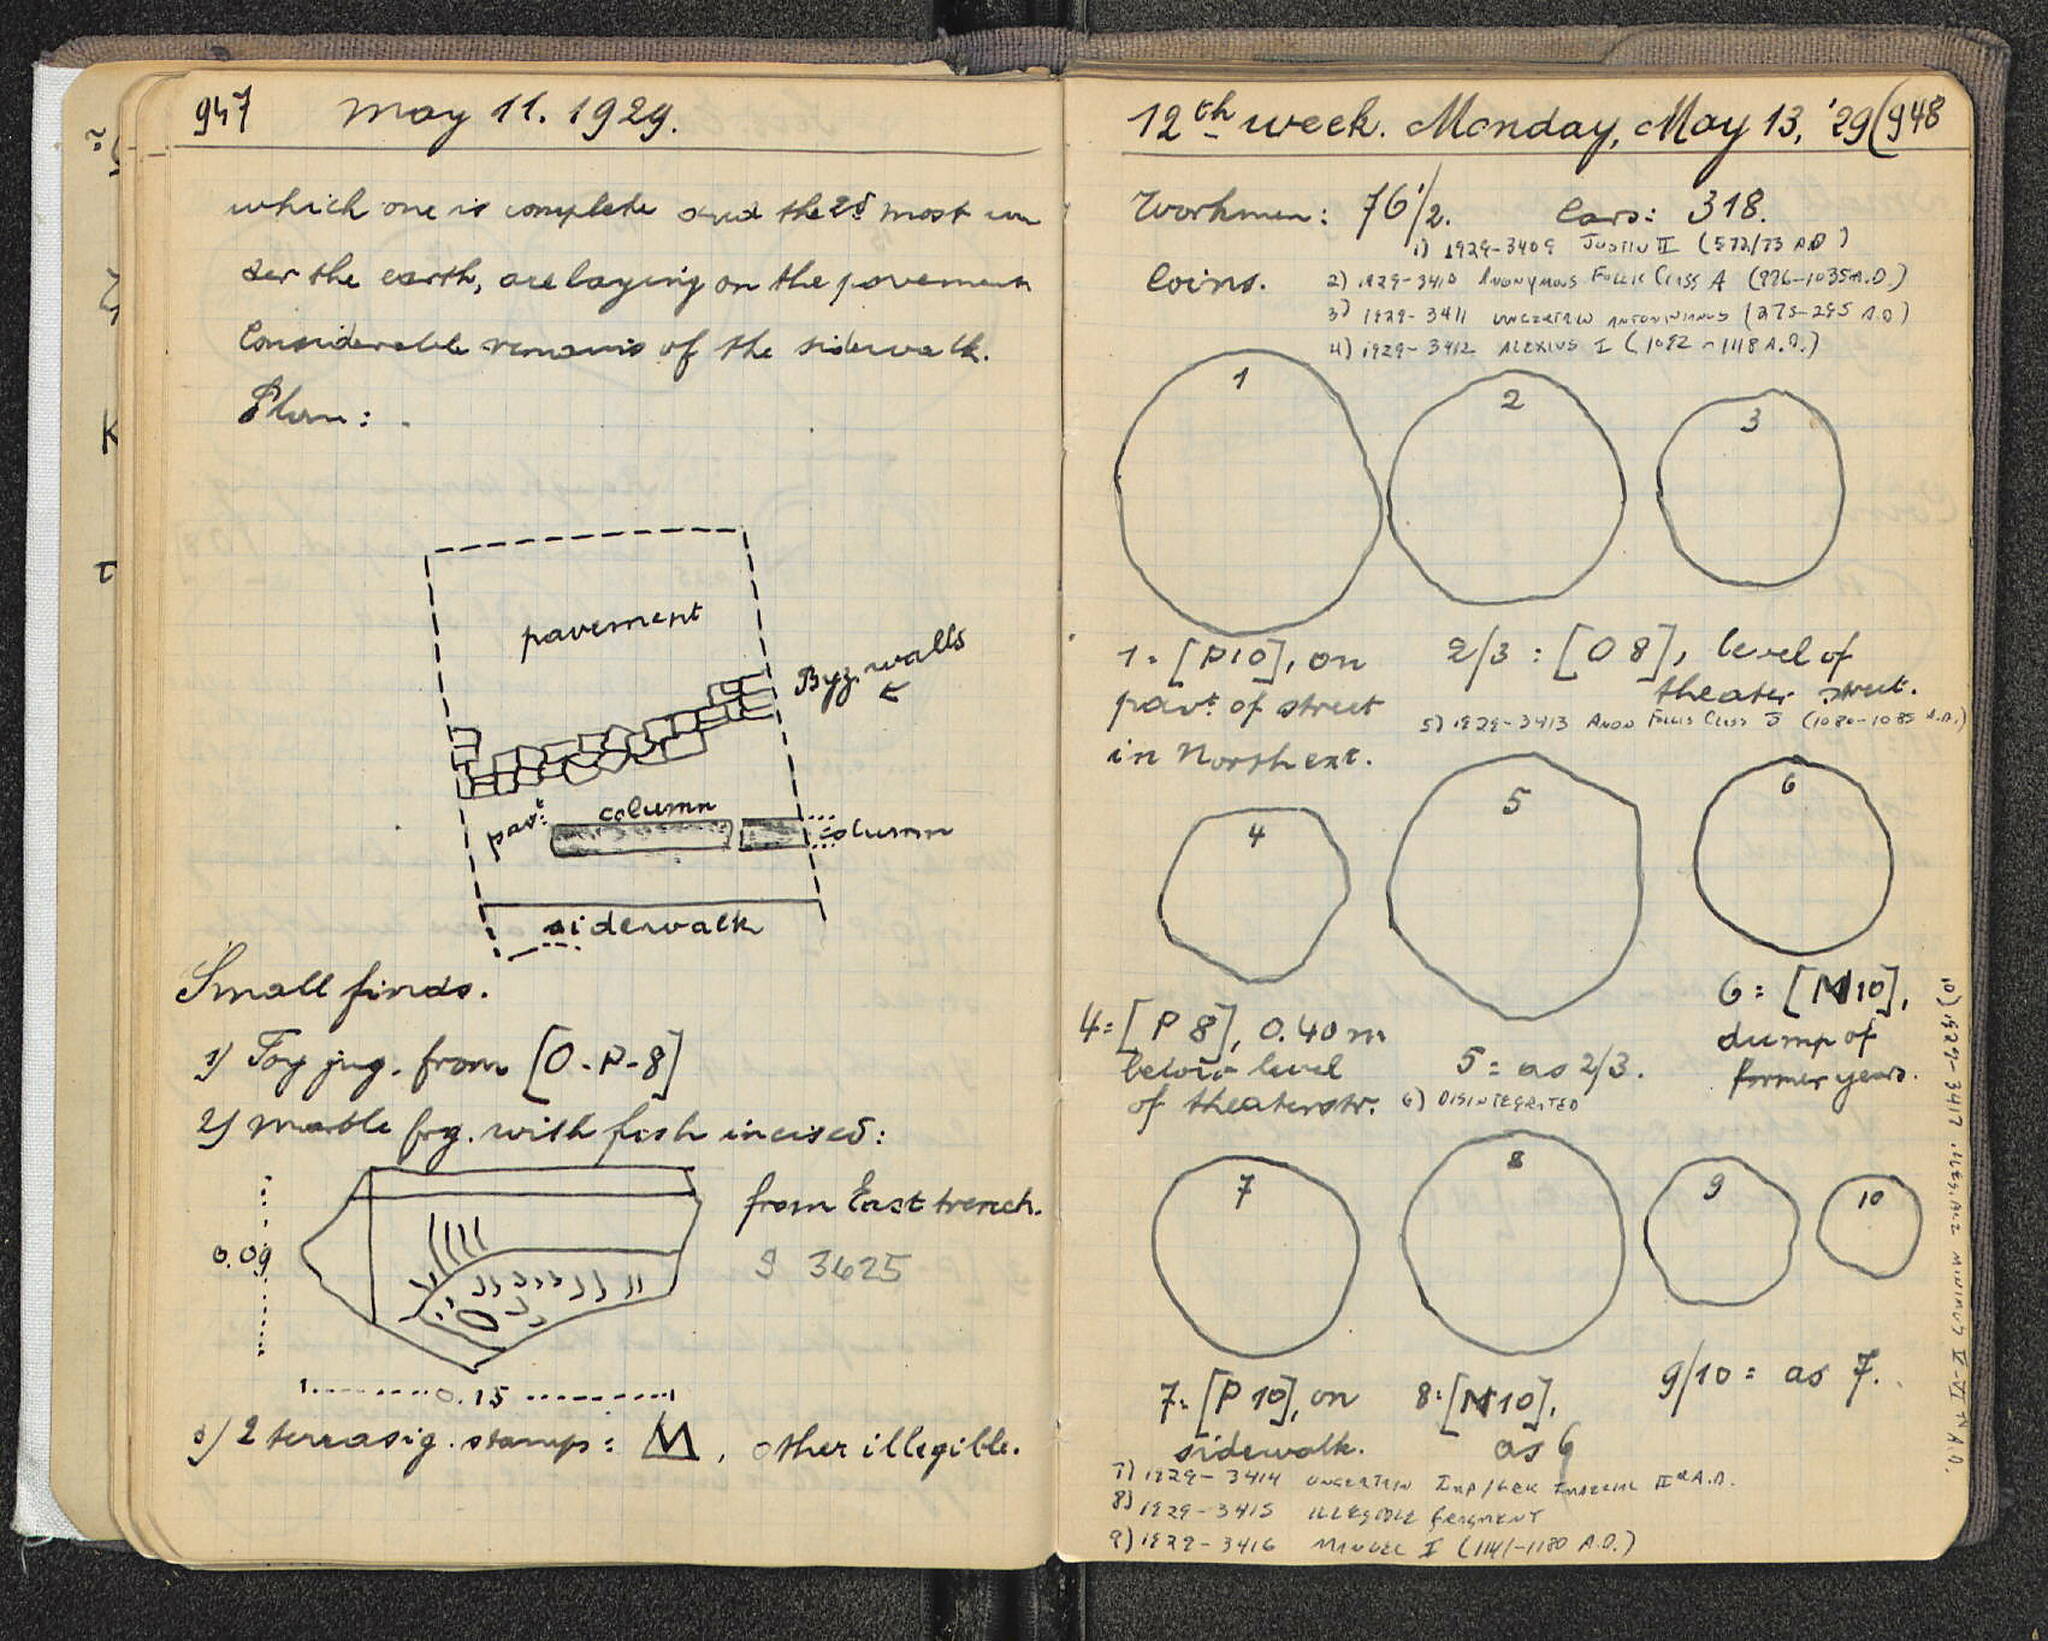 947 May 11. 1929.
which one is complete and the 2d most un
der the earth, are laying on the pavement
Considerable remains of the sidewalk.
Plan:
pavement
Byz. walls
pavt
column
column
sidewalk
Small finds.
1) Toy jug. from [O-P-8]
2) marble frg. with fish incised:
from East trench.
0.09
S 3625
0.15
3) 2 terrasig. stamps: M, other illegible.
12th week. Monday, May 13, '29 (948
Workmen: 76 1/2. Cars: 318.
1) 1929-3409 JUSTIN II (572/73 A.D)
Coins.
2) 1929-3410 ANONYMOUS FOLLIS CLASS A (976-1035 A.D.)
3) 1929-3411 UNCERTAIN ANTONINIANUS (275-295 A.D)
4) 1929-3412 ALEXIUS I (1092-1118 A.D.)
1
2
3
1 = [P10], on
pavt. of street
in North ext.
2/3: [O 8], level of
theater street.
5) 1929-3413 ANON FOLLIS CLASS J (1080-1085 A.D.)
4
5
6
4 = [P 8], 0.40 m
below level
of theaterstr.
5 = as 2/3.
6 = [N10],
dump of
former years.
6) DISINTEGRATED
7
8
9
10
7 = [P 10], on
sidewalk.
8: [N10],
as 6
9/10 = as 7.
7) 1929-3414 UNCERTAIN IMP/GRK IMPERIAL IInd A.D.
8) 1929-3415 ILLEGIBLE FRAGMENT
9) 1929-3416 MANUEL I (1141-1180 A.D.)
10) 1929-3417 MINIMUS V-VI th A.D.